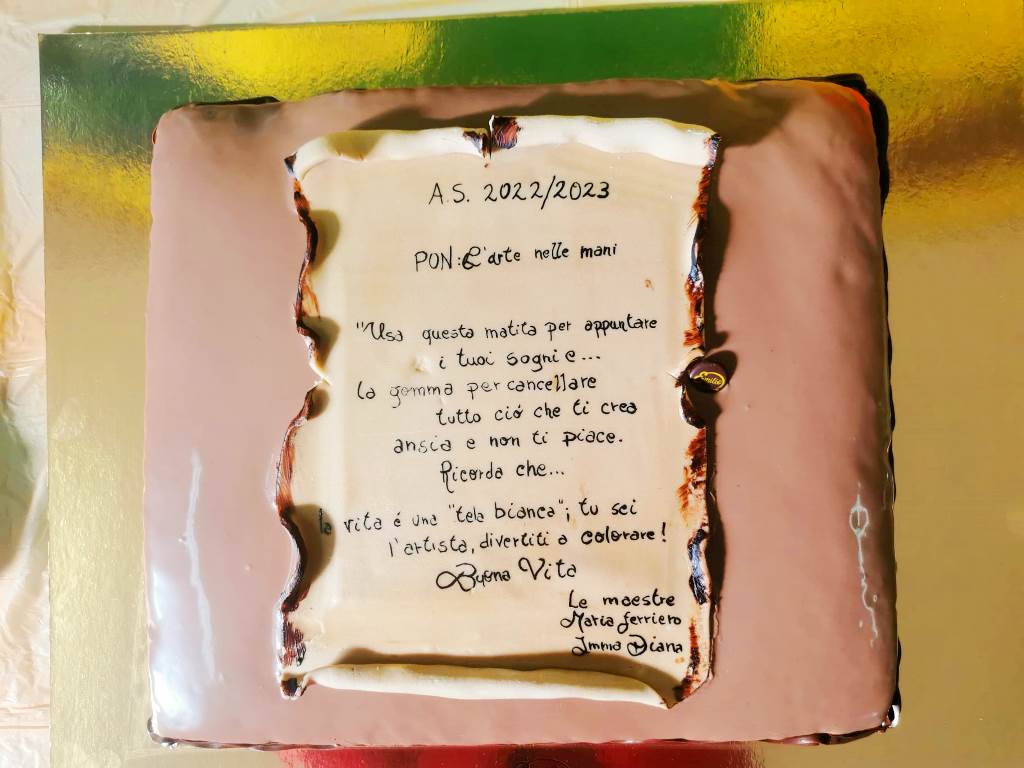 A.S. 2022/2023
PON: L'arte nelle mani
"Usa questa matita per appuntare
i tuoi sogni e...
la gomma per cancellare
tutto ció che ti crea
ansia e non ti piace.
Ricorda che...
la vita é una "tela bianca"; tu sei
l'artista, divertiti a colorare!
Buona Vita
Le maestre
Maria Ferriero
Imma Diana
Emilio